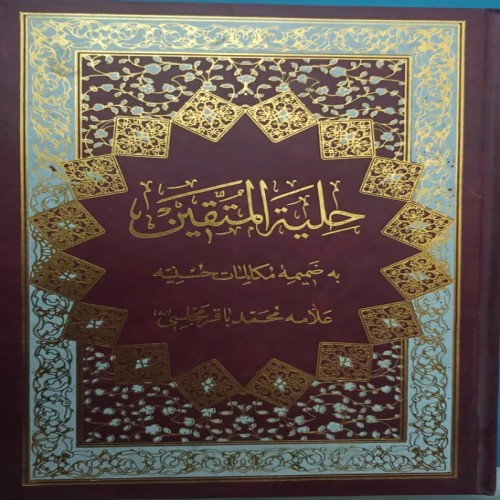 حلیة المتقین
به ضمیمه مکالمات حسنیه
علامه محمد باقر مجلسی (ره)